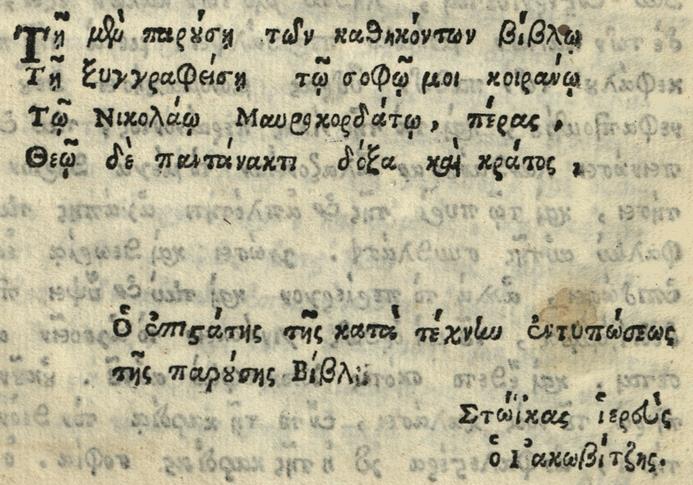 Τῇ μὲν παρούσῃ τῶν καθηκόντων βίβλῳ
Τῇ ξυγγραφείσῃ τῷ σοφῷ μοι κοιράνῳ
Τῷ Νικολάῳ Μαυροκορδάτῳ, πέρας,
Θεῷ δὲ παντάνακτι δόξα καὶ κράτος,
Ὁ ἐπιστάτης τῆς κατὰ τέχνην ἐντυπώσεως
τῆς παρούσης Βίβλου
Στωΐκας ἱερεὺς
ὁ Ἰακωβίτζης.